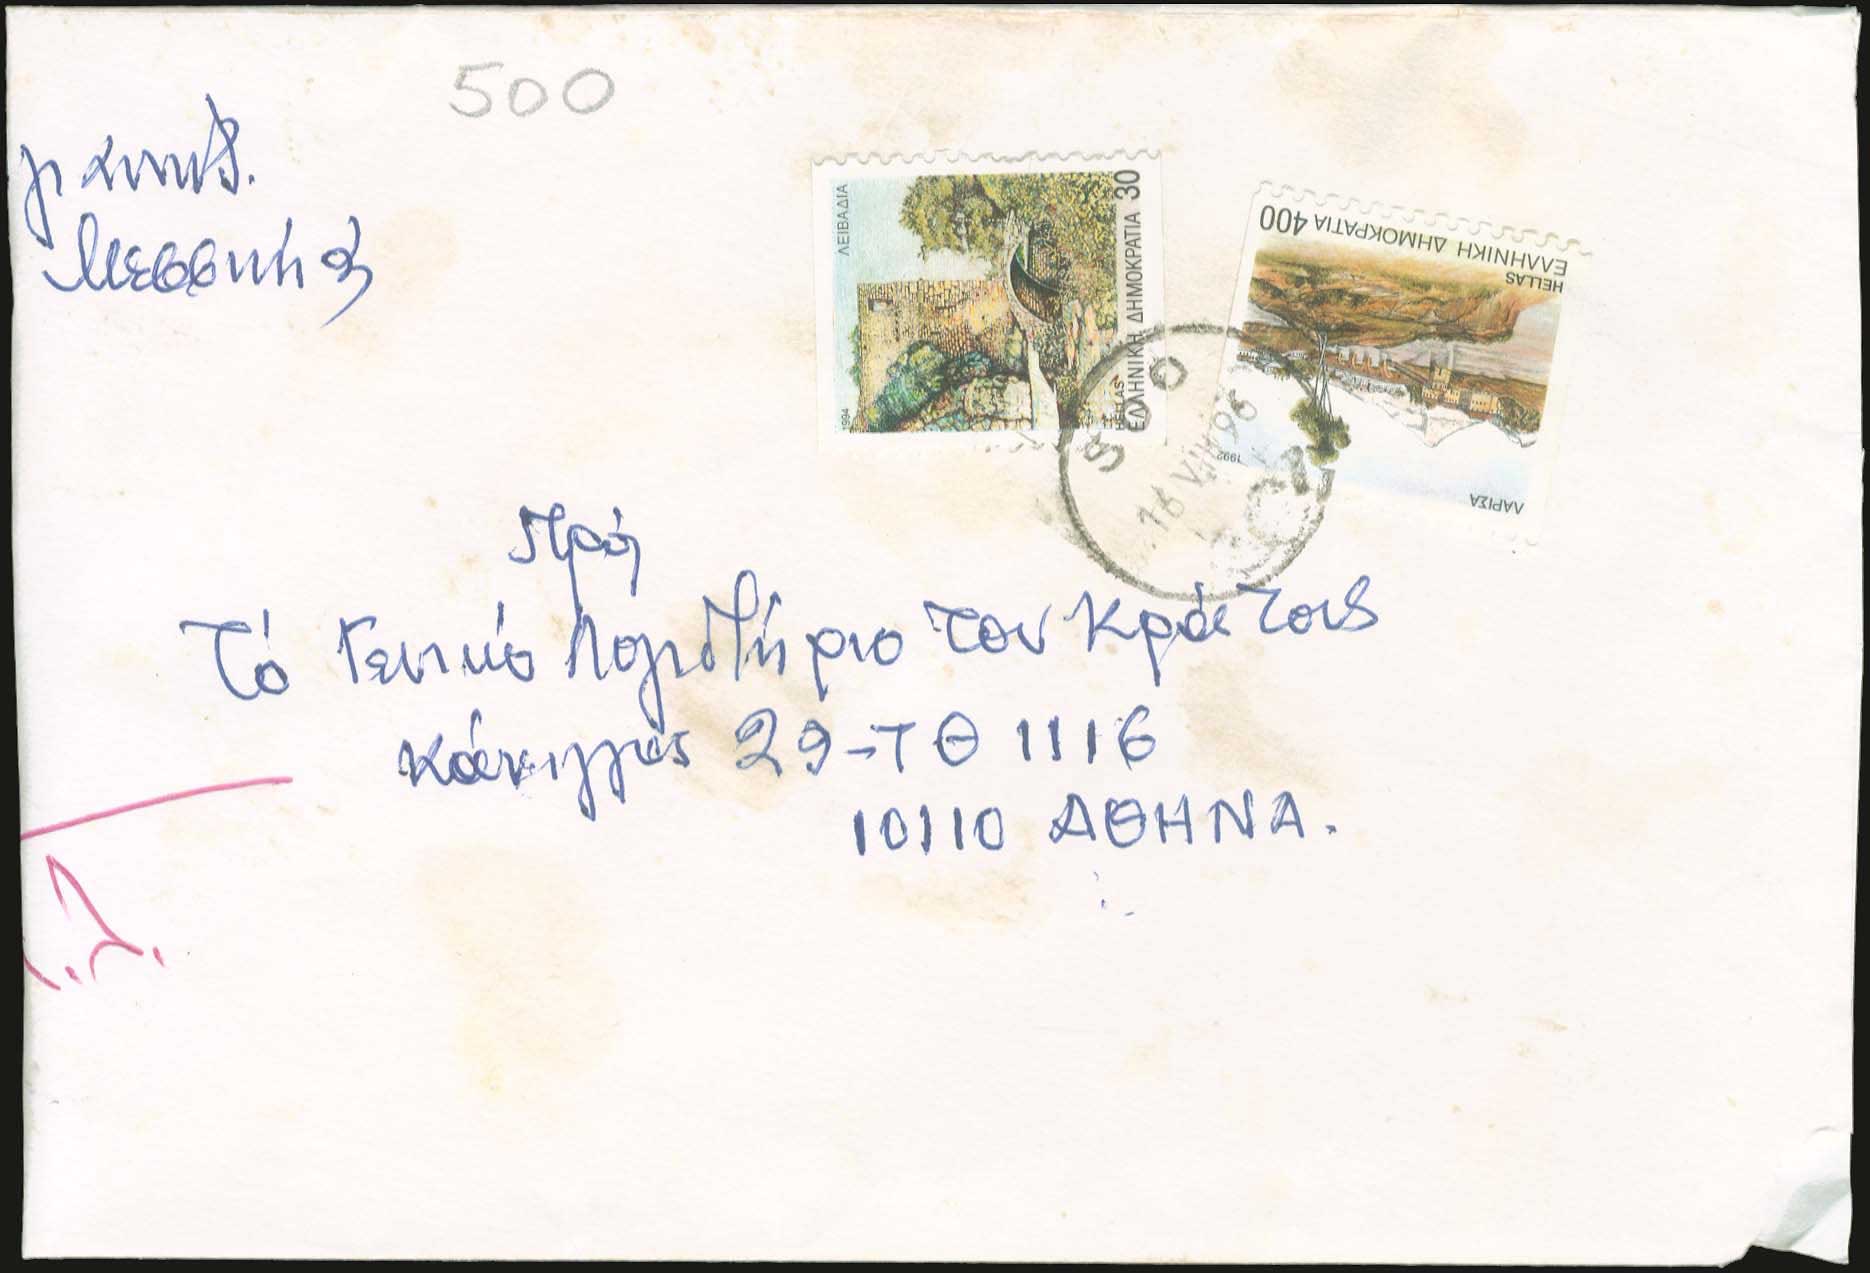 500
Γιάννης.
Μεσσηνίας
ΛΕΙΒΑΔΙΑ
1994
HELLAS
ΕΛΛΗΝΙΚΗ ΔΗΜΟΚΡΑΤΙΑ 30
ΕΛΛΗΝΙΚΗ ΔΗΜΟΚΡΑΤΙΑ 400
HELLAS
1992
ΛΑΡΙΣΑ
Πρός
Τό Γενικό Λογιστήριο του Κράτους
Κάνιγγος 29-ΤΘ 1116
10110 ΑΘΗΝΑ.